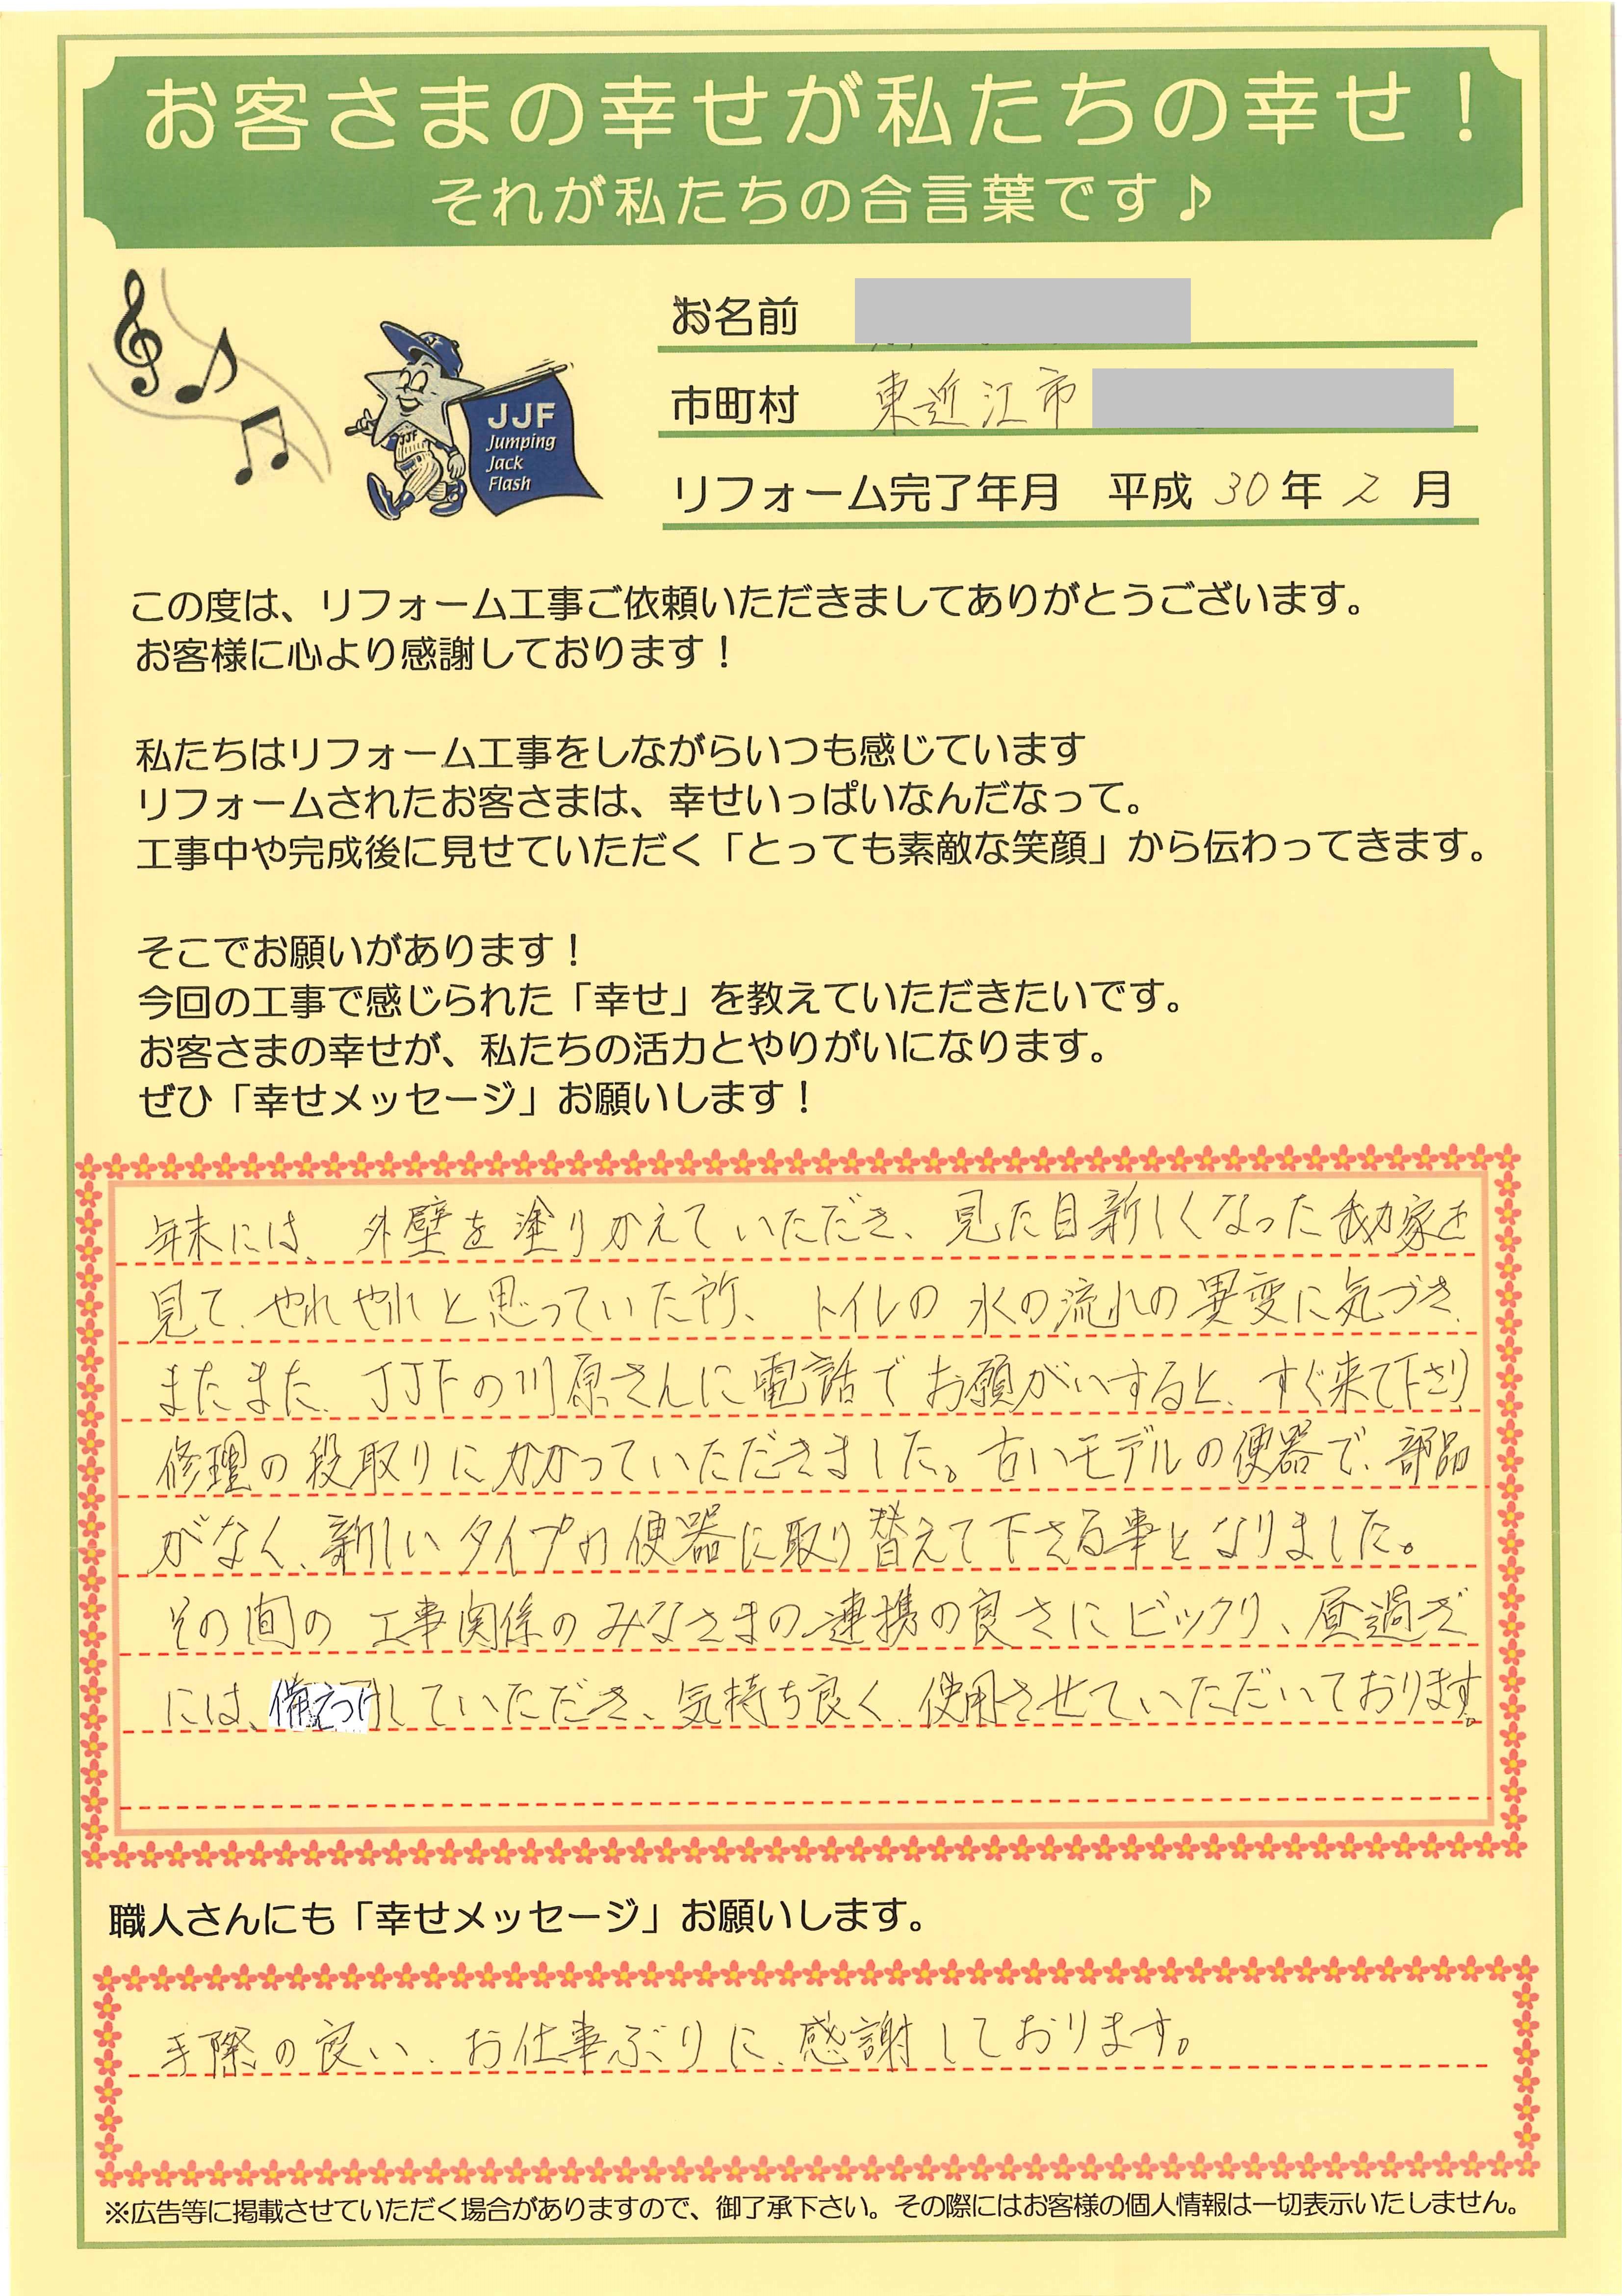 お客さまの幸せが私たちの幸せ！
それが私たちの合言葉です♪
お名前
市町村 東近江市
リフォーム完了年月 平成 30 年 2 月
JJF
Jumping
Jack
Flash
JJF
この度は、リフォーム工事ご依頼いただきましてありがとうございます。
お客様に心より感謝しております！
私たちはリフォーム工事をしながらいつも感じています
リフォームされたお客さまは、幸せいっぱいなんだなって。
工事中や完成後に見せていただく「とっても素敵な笑顔」から伝わってきます。
そこでお願いがあります！
今回の工事で感じられた「幸せ」を教えていただきたいです。
お客さまの幸せが、私たちの活力とやりがいになります。
ぜひ「幸せメッセージ」お願いします！
年末には、外壁を塗りかえていただき、見た目新しくなった我が家を
見て、やれやれと思っていた所、トイレの水の流れの異変に気づき、
またまた、JJFの川原さんに電話でお願がいすると、すぐ来て下さり
修理の段取りにかかっていただきました。古いモデルの便器で、部品
がなく、新しいタイプの便器に取り替えて下さる事となりました。
その間の工事関係のみなさまの連携の良さにビックリ、昼過ぎ
には、備えつけしていただき、気持ち良く、使用させていただいております。
職人さんにも「幸せメッセージ」お願いします。
手際の良い、お仕事ぶりに、感謝しております。
※広告等に掲載させていただく場合がありますので、御了承下さい。その際にはお客様の個人情報は一切表示いたしません。